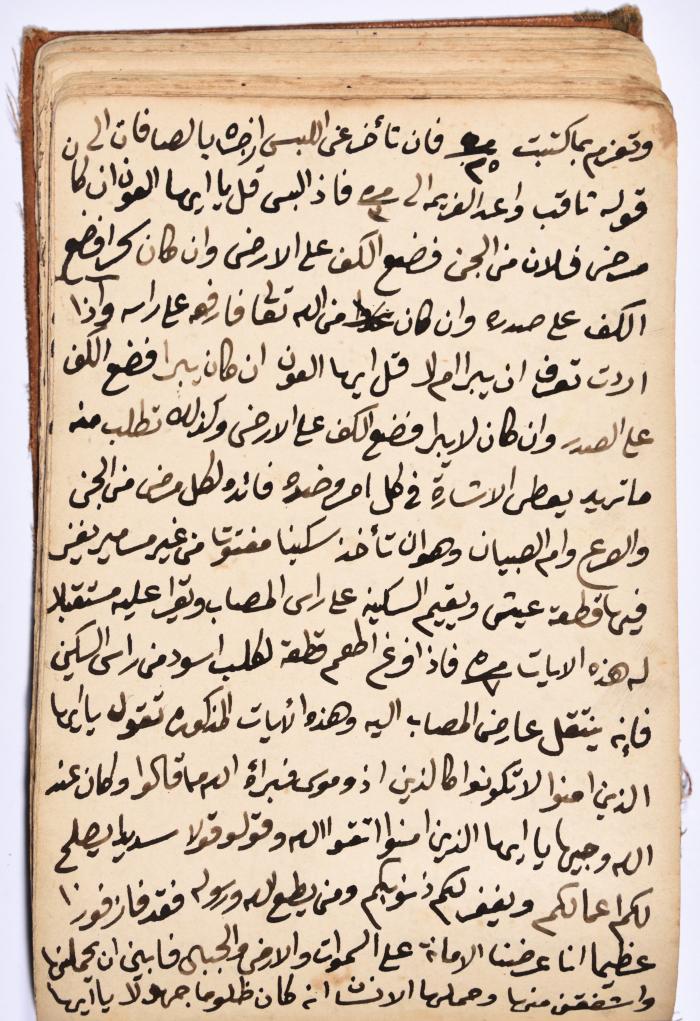 وتعزم بما كتبت مره ٢٥ فان تأخر عن اللبس ازجره بالصافات الى ن
قوله ثاقب واعد العزيمه الى مره فاذ البس قل يا ايها العون ان كا
مرض فلان من الجن فضع الكف على الارض وان كان سحر افضع
الكف على صدره وان كان من الله تعا فارفعه على راسه واذا
اردت تعرف ان يبرا ام لا قل ايها العون ان كان يبرا فضع الكف
على الصدر وان كان لا يبرا فضع الكف على الارض وكذلك تطلب منه
ما تريد يعطى الاشارة في كل امر وضده فائده لكل مرض من الجن
والصرع وام الصبيان وهو ان تأخذ سكينا مفتوتا من غير مسامير يغز
فيها قطعة عيش ويقيم السكينه على راس المصاب وتقرا عليه مستقبلا
له هذه الايات مره ٧ فاذا فرغ اطعم قطعة لكلب اسود من راس السكين
فإنه ينتقل عارض المصاب اليه وهذه الأيات المذكوره تقول يا ايها
الذين امنوا لا تكونوا كالذين اذو موسى فبرأه الله مما قالوا وكان عند
الله وجيها يا ايها الذين امنوا اتقوا الله وقولو قولا سديدا يصلح
لكم اعمالكم ويغفر لكم ذنوبكم ومن يطع الله ورسوله فقد فاز فوزا
عظيما انا عرضنا الامانة على السموات والارض والجبال فابين ان يحملنها
واشفقن منها وحملها الانسان انه كان ظلوما جهولا يا ايها